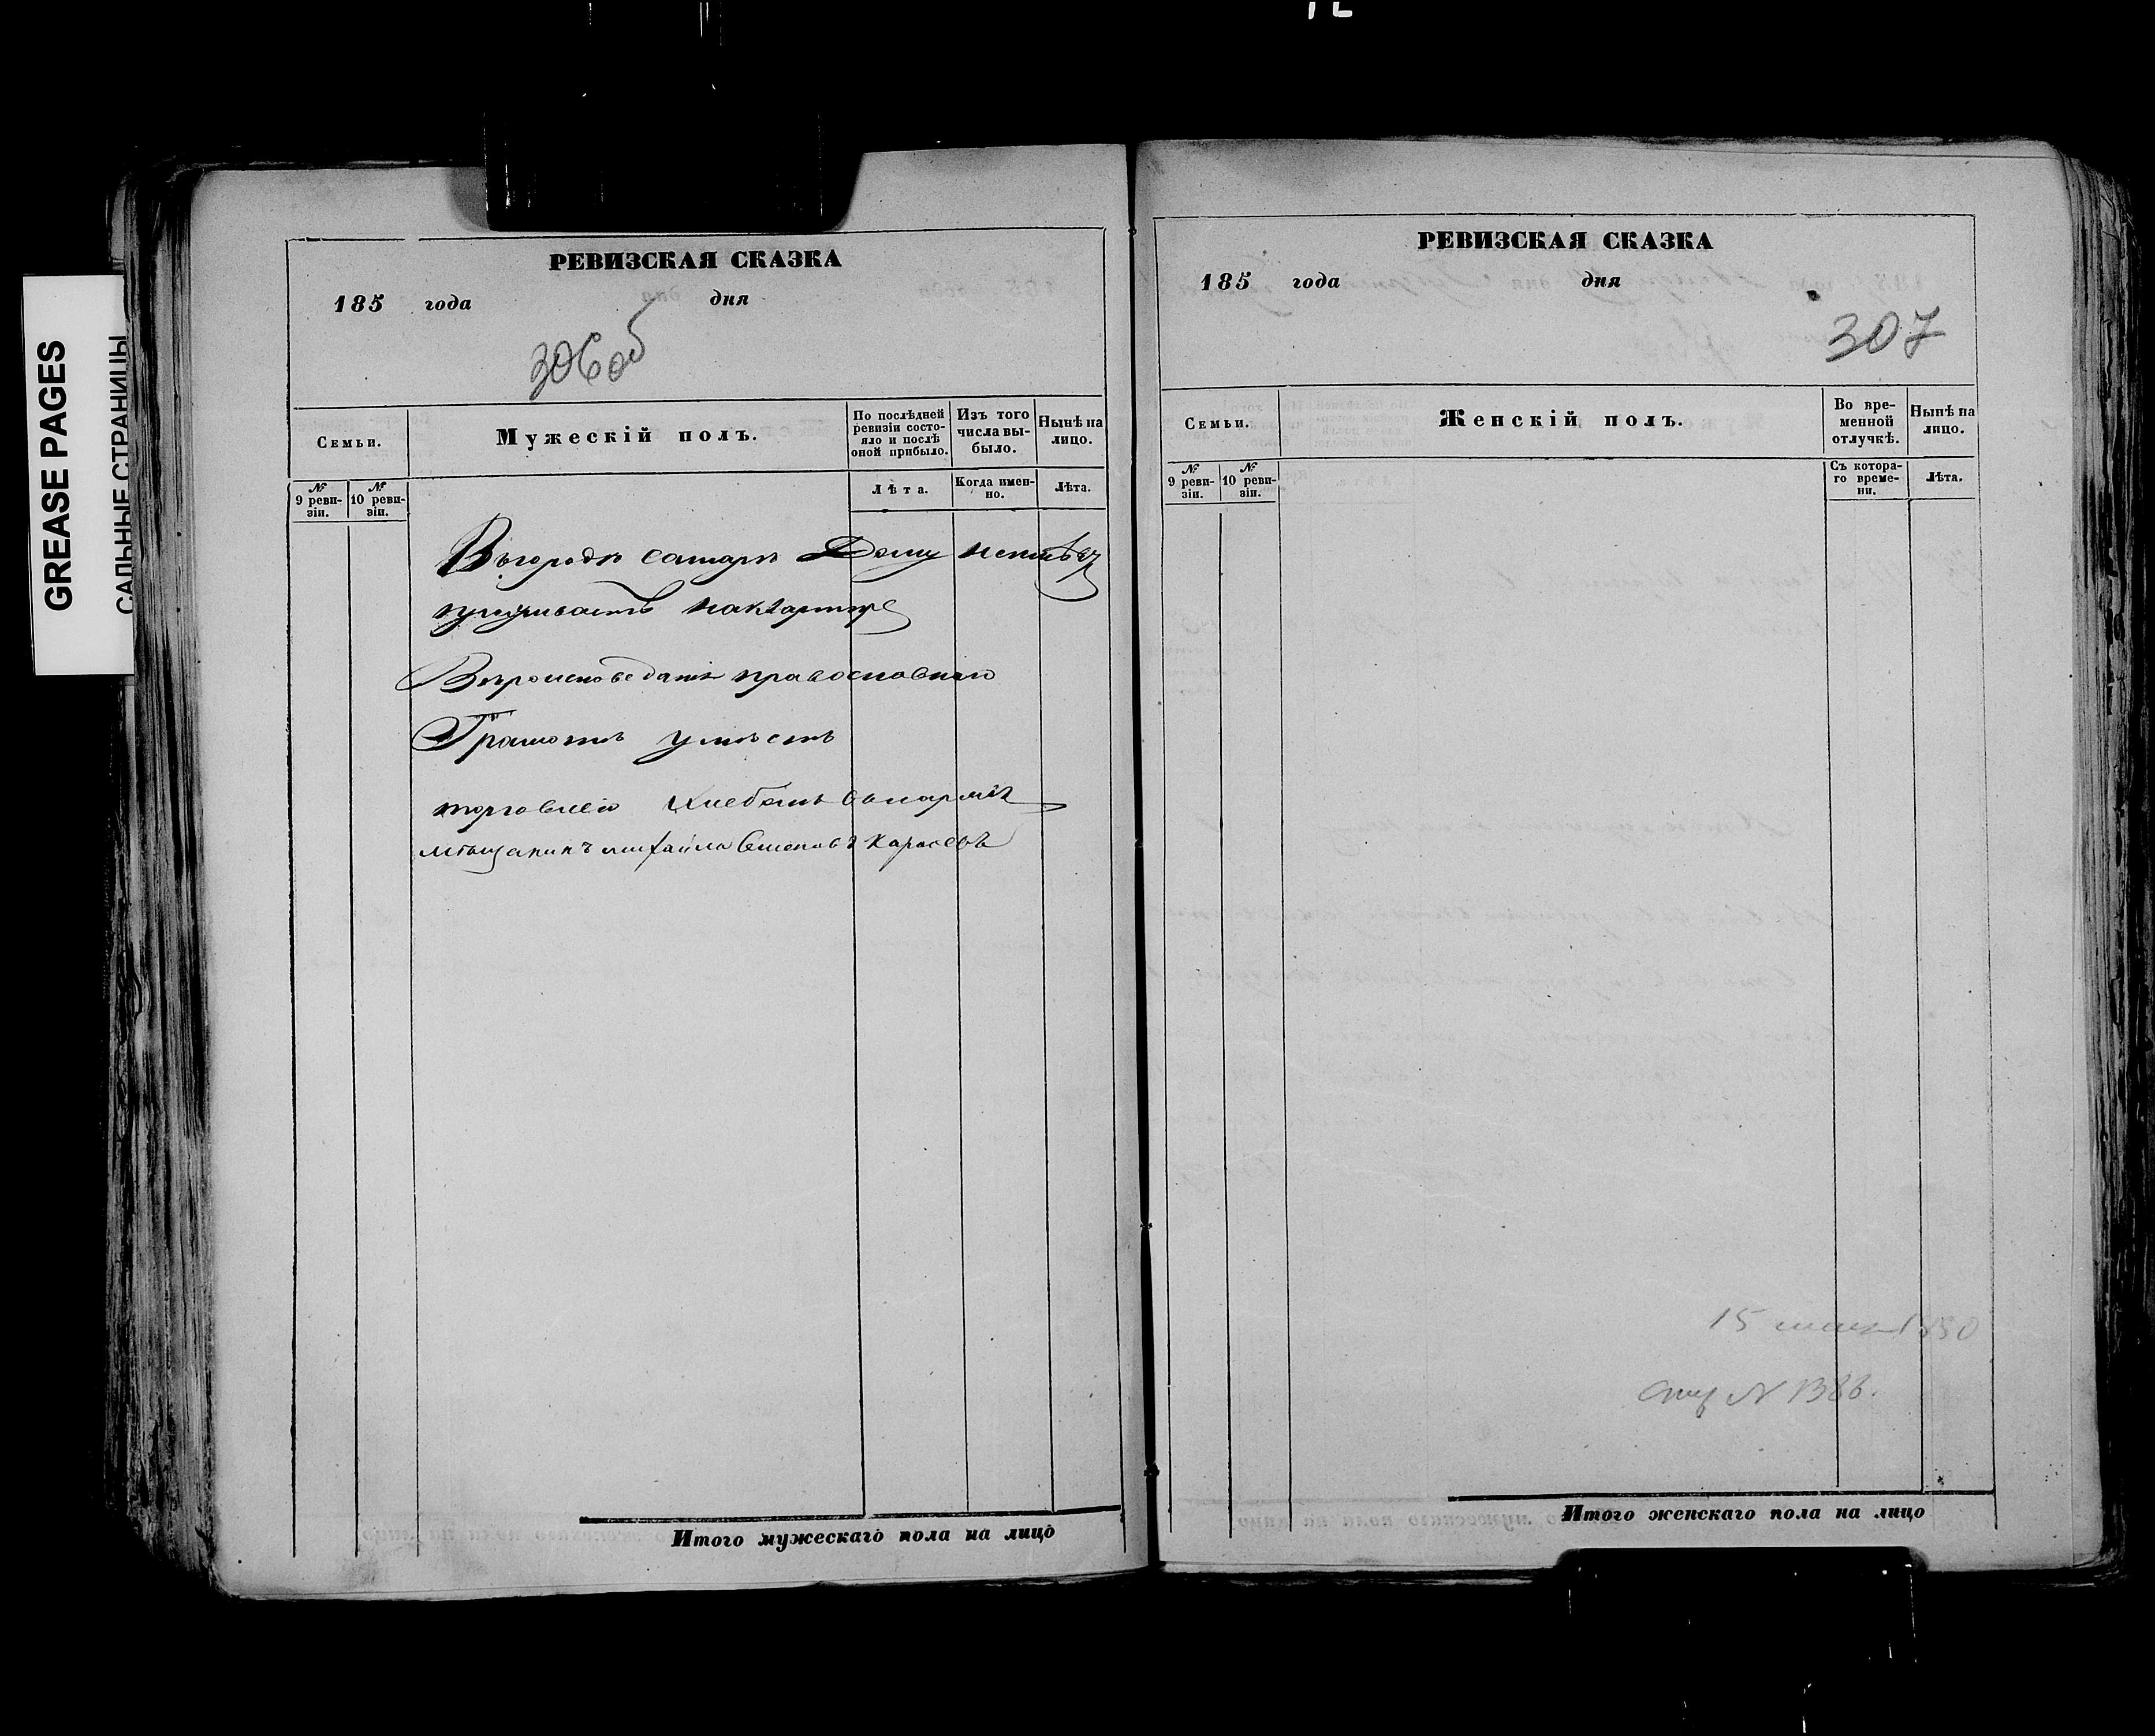 GREASE PAGES
САЛЬНЫЕ СТРАНИЦЫ
РЕВИЗСКАЯ СКАЗКА
185 года дня
306об
Семьи.
Мужескій полъ.
По послѣдней ревизіи состояло и послѣ оной прибыло.
Изъ того числа выбыло.
Нынѣ на лицо.
№ 9 ревизіи.
№ 10 ревизіи.
Лѣта.
Когда именно.
Лѣта.
Въгородѣ самарѣ Дому неимѣет
проживаетъ наквартире
Вѣроисповеданія православнаго
Грамотѣ умѣетъ
торговлею хлебомъ
мѣщанинъ михаила Семеновъ Карасевъ
Итого мужескаго пола на лицо
РЕВИЗСКАЯ СКАЗКА
185 года дня
307
Семьи.
Женскій полъ.
Во временной отлучкѣ.
Нынѣ на лицо.
№ 9 ревизіи.
№ 10 ревизіи.
Съ котораго времени.
Лѣта.
15 1850
№ 1386.
Итого женскаго пола на лицо